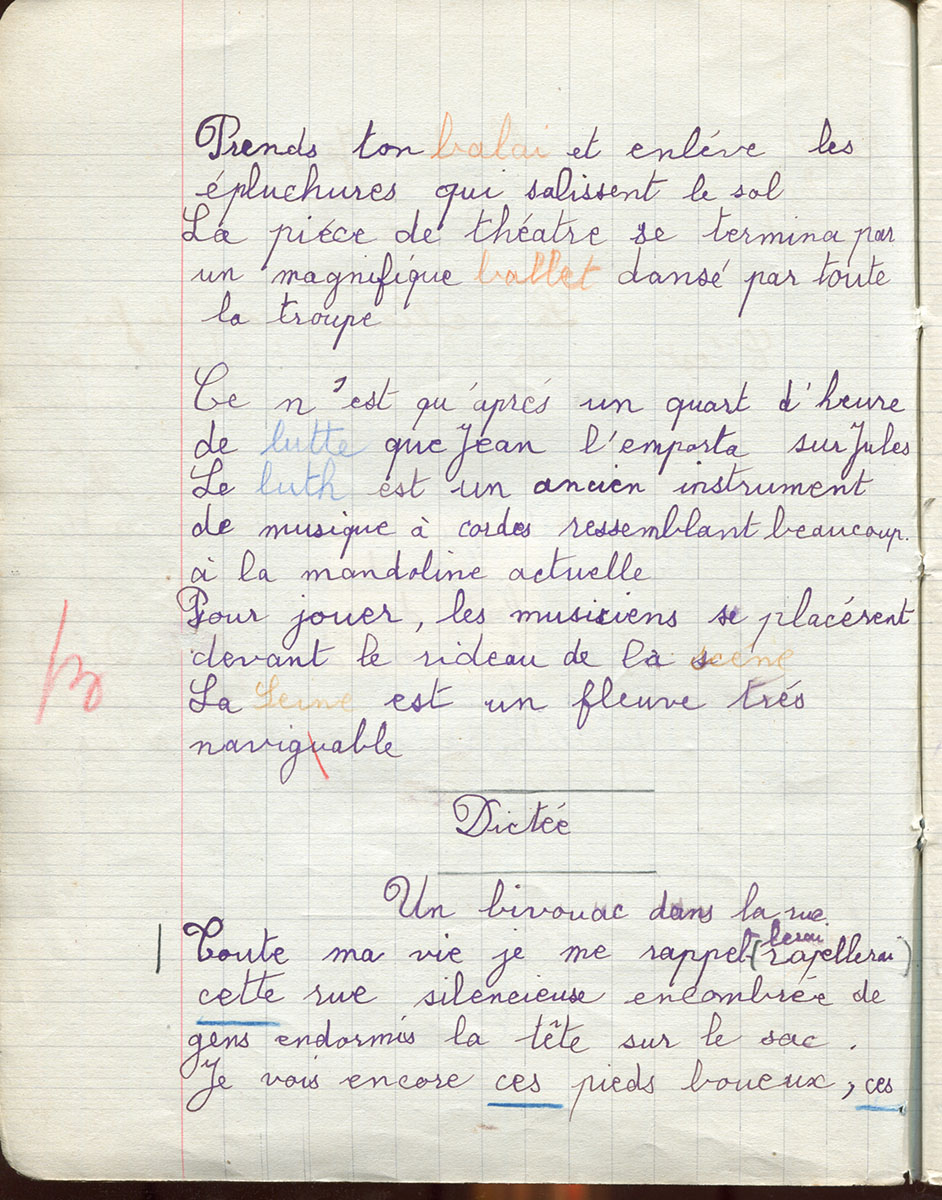 Prends ton balai et enléve les
épluchures qui salissent le sol
La piéce de théatre se termina par
un magnifique ballet dansé par toute
la troupe
Ce n'est qu'aprés un quart d'heure
de lutte que Jean l'emporta sur Jules
Le luth est un ancien instrument
de musique à cordes ressemblant beaucoup.
à la mandoline actuelle
Pour jouer, les musiciens se placérent
devant le rideau de la scène
La Seine est un fleuve trés
naviguable
Dictée
Un bivouac dans la rue.
lerai
Toute ma vie je me rappel (rapellerai)
cette rue silencieuse encombrée de
gens endormis la tête sur le sac.
Je vois encore ces pieds boueux, ces